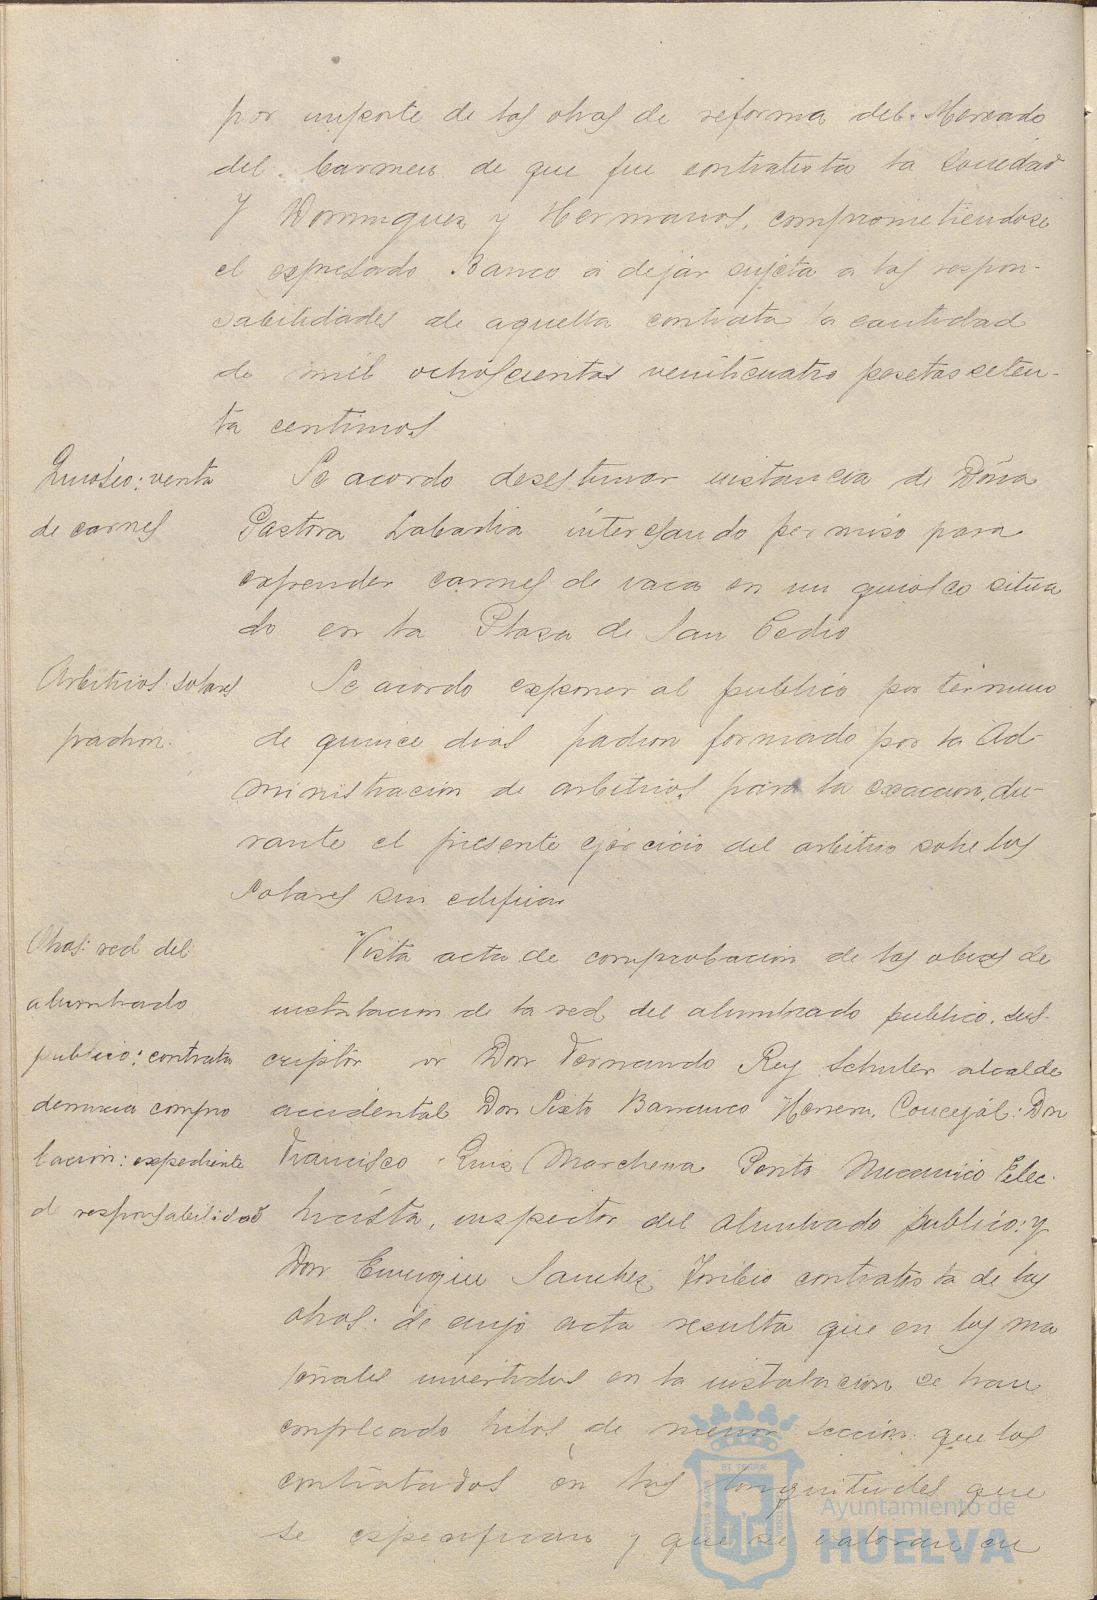 por importe de las obras de reforma del Mercado
del Carmen de que fue contratista la Sociedad
Y Dominguez y Hermanos, comprometiendose
el expresado Banco a dejar sujeta a las respon-
sabilidades de aquella contrata la cantidad
de mil ochoscientas veinticuatro pesetas seten-
ta centimos.
Quiosco: venta
de carnes
Se acordo desestimar instancia de Doña
Pastora Labadia interesando permiso para
expender carnes de vaca en un quiosco situa
do en la Plaza de San Pedro
Arbitrios: solares
padron.
Se acordo exponer al publico por termino
de quince dias padron formado por la Ad-
ministracion de arbitrios para la exaccion, du-
rante el presente ejercicio del arbitrio sobre los
Solares sin edificar
Obras: red del
alumbrado
publico: contrata
denuncia compro
bacion: expediente
de responsabilidad
Vista acta de comprobacion de las obras de
instalacion de la red del alumbrado publico, sus-
cripta por Don Fernando Rey Schuler alcalde
accidental Don Sixto Barranco Herrera, Concejal: Don
Francisco Ruiz Marchena Perito Mecanico Elec-
tricista, inspector del alumbrado publico: y
Don Enrique Sanchez Toribio contratista de las
obras: de cuyo acta resulta que en los ma
teriales invertidos en la instalacion se han
empleado hilos de menor seccion que los
contratados en las longitudes que
se especifican y que se valoran en
Ayuntamiento de
HUELVA